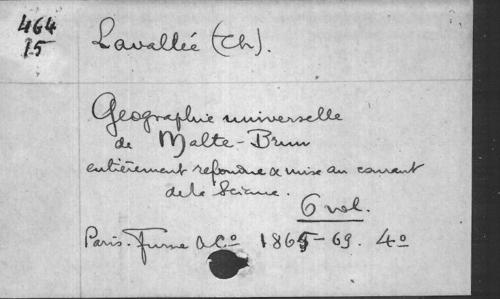 464
15
Lavallée (Ch).
Geographie universelle
de Malte-Brun
entièrement refondue & mise au courant
de la Science.
6 vol.
Paris. Furne & Co 1865-69. 4o